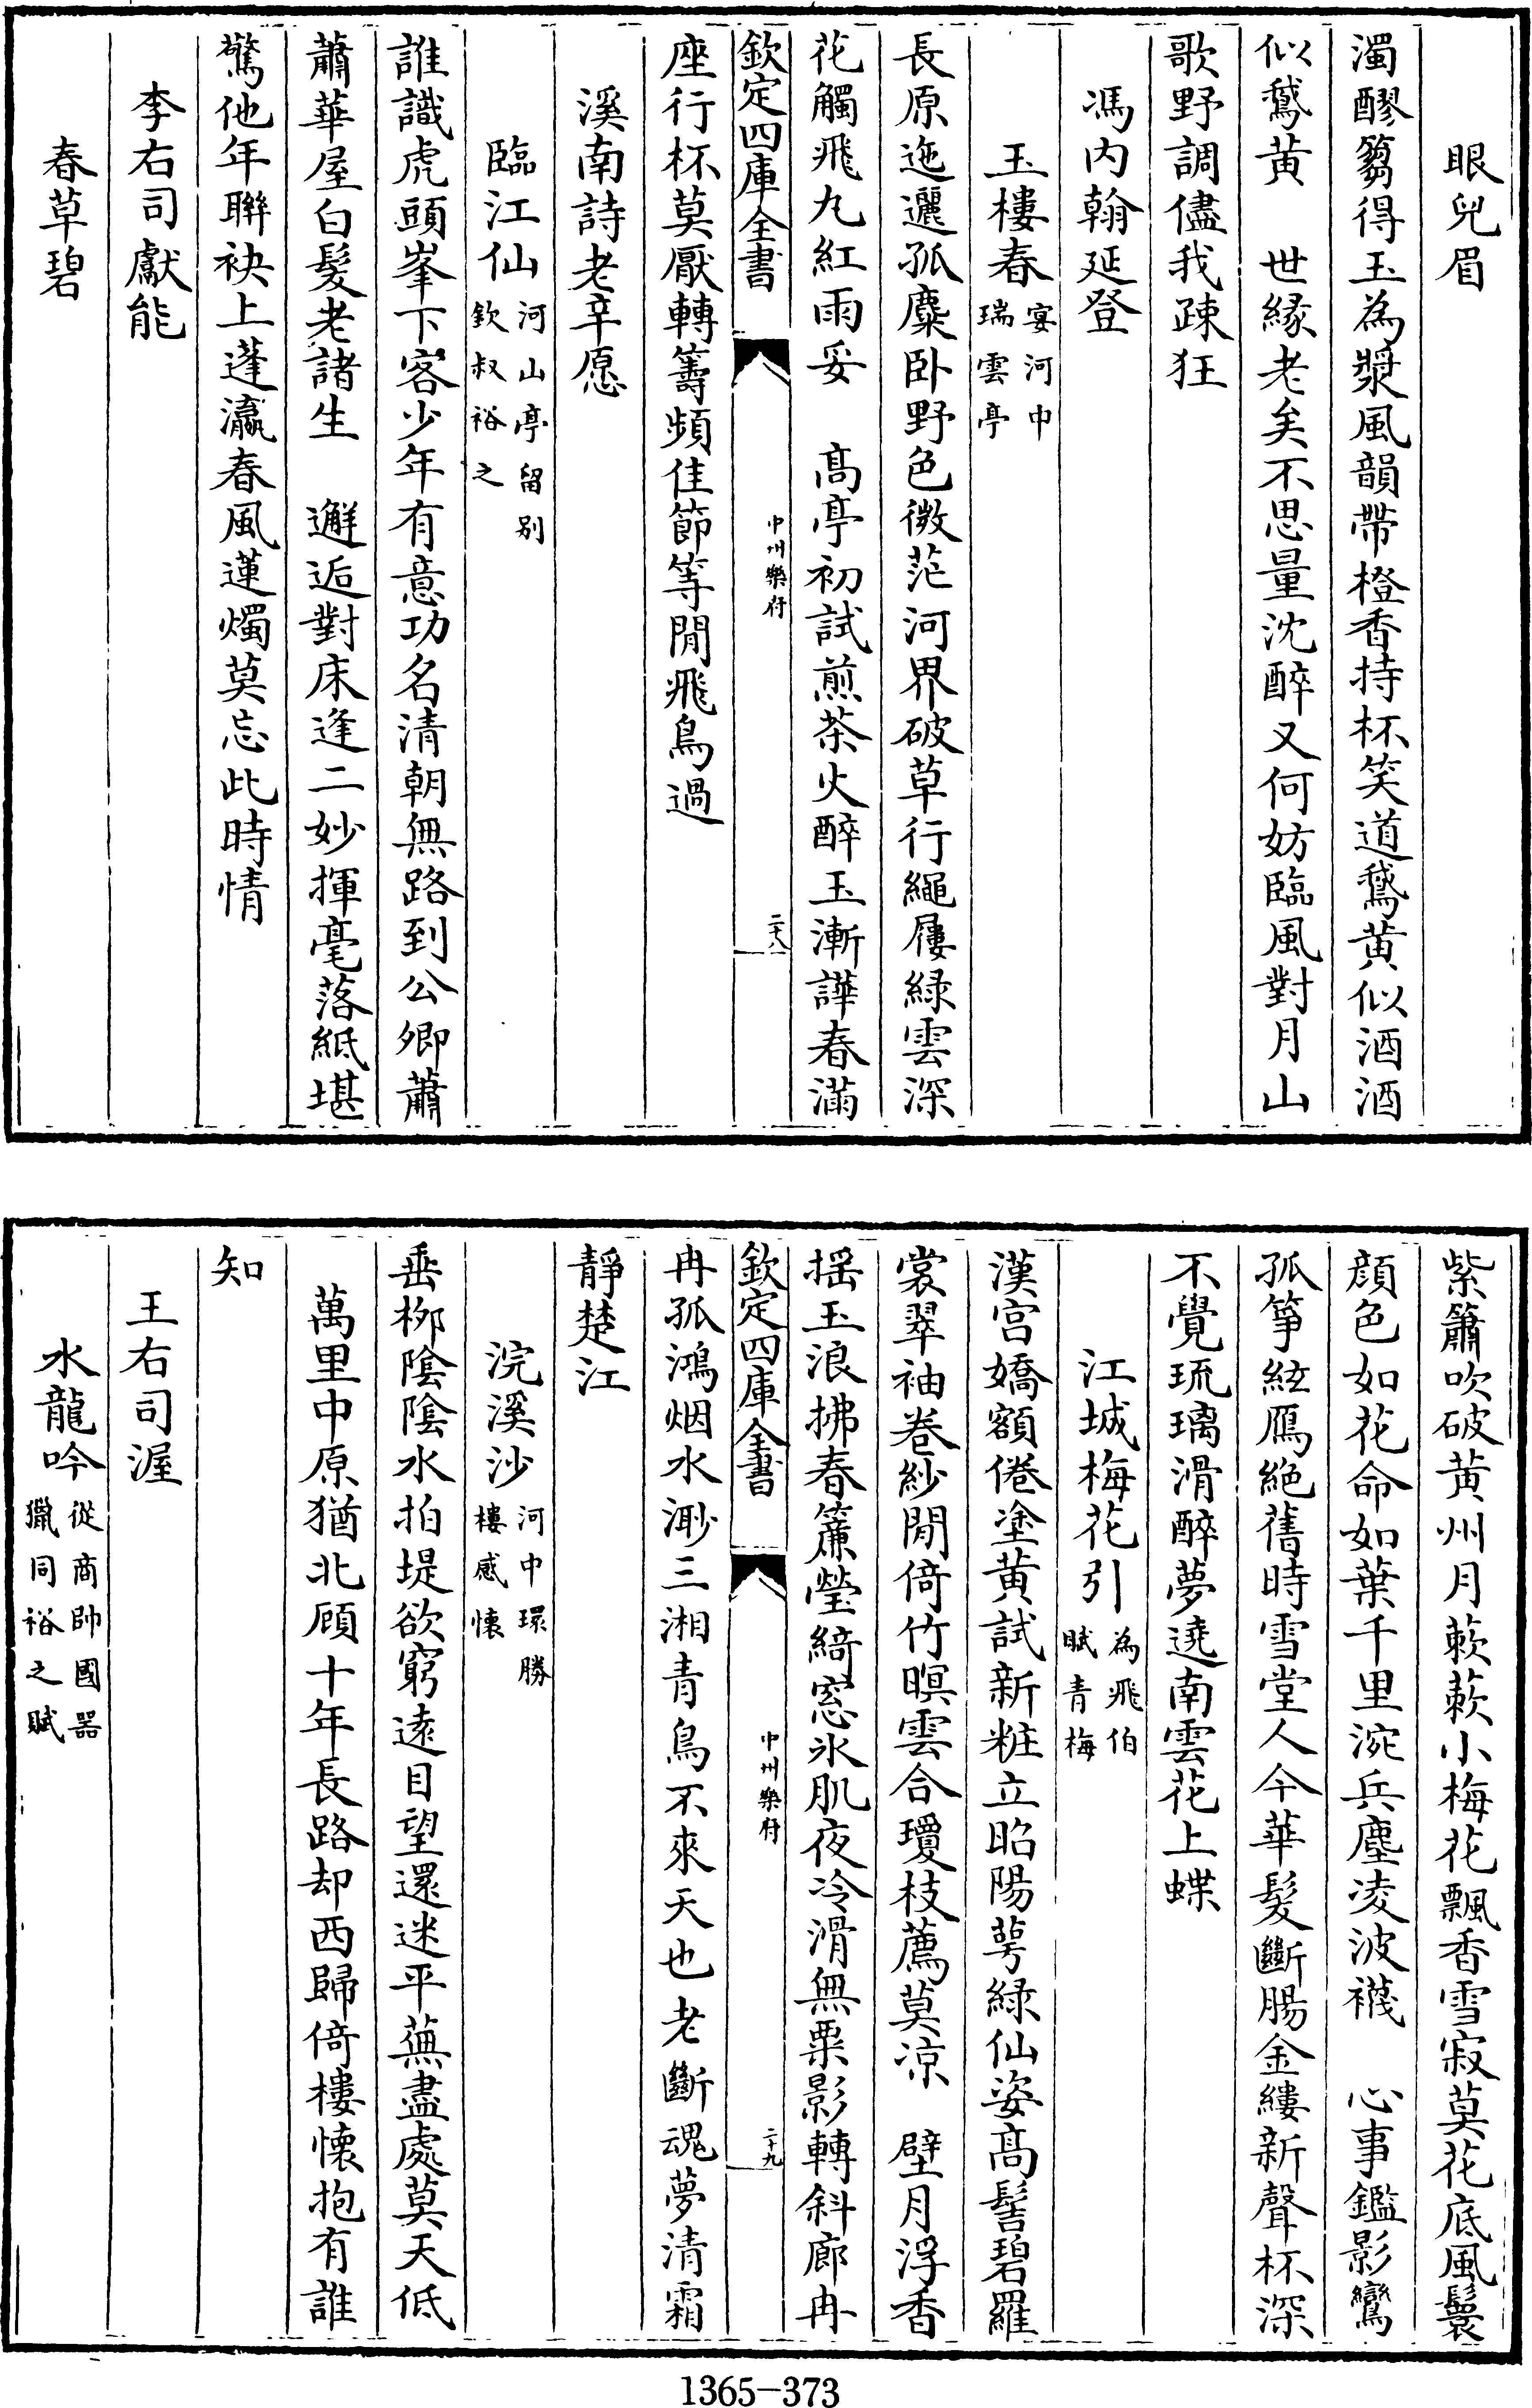 眼兒眉
濁醪篘得玉為漿風韻帶橙香持杯笑道鵞黄似酒酒
似鵞黄　世縁老矣不思量沈醉又何妨臨風對月山
歌野調儘我疎狂
馮内翰延登
玉樓春
宴河中
瑞雲亭
長原迤邐孤麋卧野色微茫河界破草行繩屨緑雲深
花觸飛丸紅雨妥　髙亭初試煎茶火醉玉漸譁春滿
欽定四庫全書
中州樂府
二十八
座行杯莫厭轉籌頻佳節等閒飛鳥過
溪南詩老辛愿
臨江仙
河山亭留别
欽叔裕之
誰識虎頭峯下客少年有意功名清朝無路到公卿蕭
蕭華屋白髪老諸生　邂逅對床逢二妙揮毫落紙堪
驚他年聯袂上蓬瀛春風蓮燭莫忘此時情
李右司獻能
春草碧
紫簫吹破黄州月蔌蔌小梅花飄香雪寂莫花底風鬟
顔色如花命如葉千里涴兵塵凌波襪　心事鑑影鸞
孤箏絃鴈絶舊時雪堂人今華髪斷腸金縷新聲杯深
不覺琉璃滑醉夢遶南雲花上蝶
江城梅花引
為飛伯
賦青梅
漢宫嬌額倦塗黄試新粧立昭陽萼緑仙姿髙髻碧羅
裳翠袖卷紗閒倚竹暝雲合瓊枝薦莫凉　壁月浮香
揺玉浪拂春簾瑩綺窓氷肌夜冷滑無粟影轉斜廊冉
欽定四庫全書
中州樂府
二十九
冉孤鴻烟水渺三湘青鳥不來天也老斷魂夢清霜
靜楚江
浣溪沙
河中環勝
樓感懷
垂栁隂隂水拍堤欲窮逺目望還迷平蕪盡處莫天低
萬里中原猶北顧十年長路却西歸倚樓懷抱有誰
知
王右司渥
水龍吟
從商帥國器
獵同裕之賦
1365-373